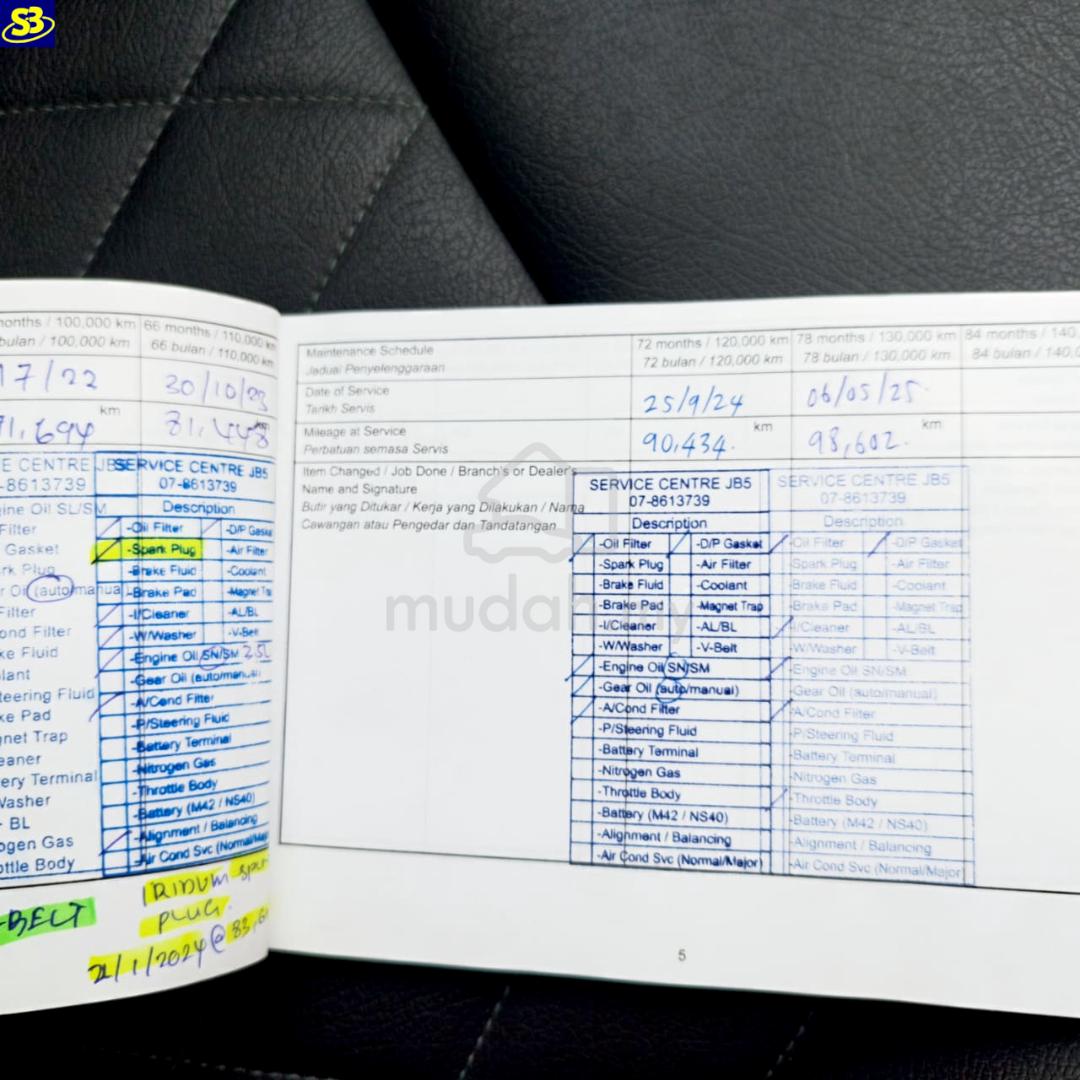 S3
months / 100,000 km
bulan / 100,000 km
66 months / 110,000 km
66 bulan / 110,000 km
17/22
30/10/23
71,694 km
81,448 km
E CENTRE JB5
-8613739
gine Oil SL/SM
Filter
Gasket
rk Plug
r Oil (auto/manual
Filter
ond Filter
ke Fluid
lant
teering Fluid
ke Pad
gnet Trap
eaner
ery Terminal
Washer
- BL
ogen Gas
ottle Body
-BELT
SERVICE CENTRE JB5
07-8613739
Description
-Oil Filter -D/P Gasket
-Spark Plug -Air Filter
-Brake Fluid -Coolant
-Brake Pad -Magnet Trap
-I/Cleaner -AL/BL
-W/Washer -V-Belt
-Engine Oil SN/SM 2.5L
-Gear Oil (auto/manual)
-A/Cond Filter
-P/Steering Fluid
-Battery Terminal
-Nitrogen Gas
-Throttle Body
-Battery (M42 / NS40)
-Alignment / Balancing
-Air Cond Svc (Normal/Major
IRIDIUM SPARK
PLUG.
21/1/2024 @ 83,
Maintenance Schedule
Jadual Penyelenggaraan
72 months / 120,000 km
72 bulan / 120,000 km
78 months / 130,000 km
78 bulan / 130,000 km
84 months / 140,0
84 bulan / 140,0
Date of Service
Tarikh Servis
25/9/24
06/05/25.
Mileage at Service
Perbatuan semasa Servis
90,434. km
98,602. km
Item Changed / Job Done / Branch's or Dealer's
Name and Signature
Butir yang Ditukar / Kerja yang Dilakukan / Nama
Cawangan atau Pengedar dan Tandatangan
SERVICE CENTRE JB5
07-8613739
Description
-Oil Filter -D/P Gasket
-Spark Plug -Air Filter
-Brake Fluid -Coolant
-Brake Pad -Magnet Trap
-I/Cleaner -AL/BL
-W/Washer -V-Belt
-Engine Oil SN/SM
-Gear Oil (auto/manual)
-A/Cond Filter
-P/Steering Fluid
-Battery Terminal
-Nitrogen Gas
-Throttle Body
-Battery (M42 / NS40)
-Alignment / Balancing
-Air Cond Svc (Normal/Major)
SERVICE CENTRE JB5
07-8613739
Description
-Oil Filter -D/P Gasket
-Spark Plug -Air Filter
-Brake Fluid -Coolant
-Brake Pad -Magnet Trap
-I/Cleaner -AL/BL
-W/Washer -V-Belt
-Engine Oil SN/SM
-Gear Oil (auto/manual)
-A/Cond Filter
-P/Steering Fluid
-Battery Terminal
-Nitrogen Gas
-Throttle Body
-Battery (M42 / NS40)
-Alignment / Balancing
-Air Cond Svc (Normal/Major)
mudah.my
5